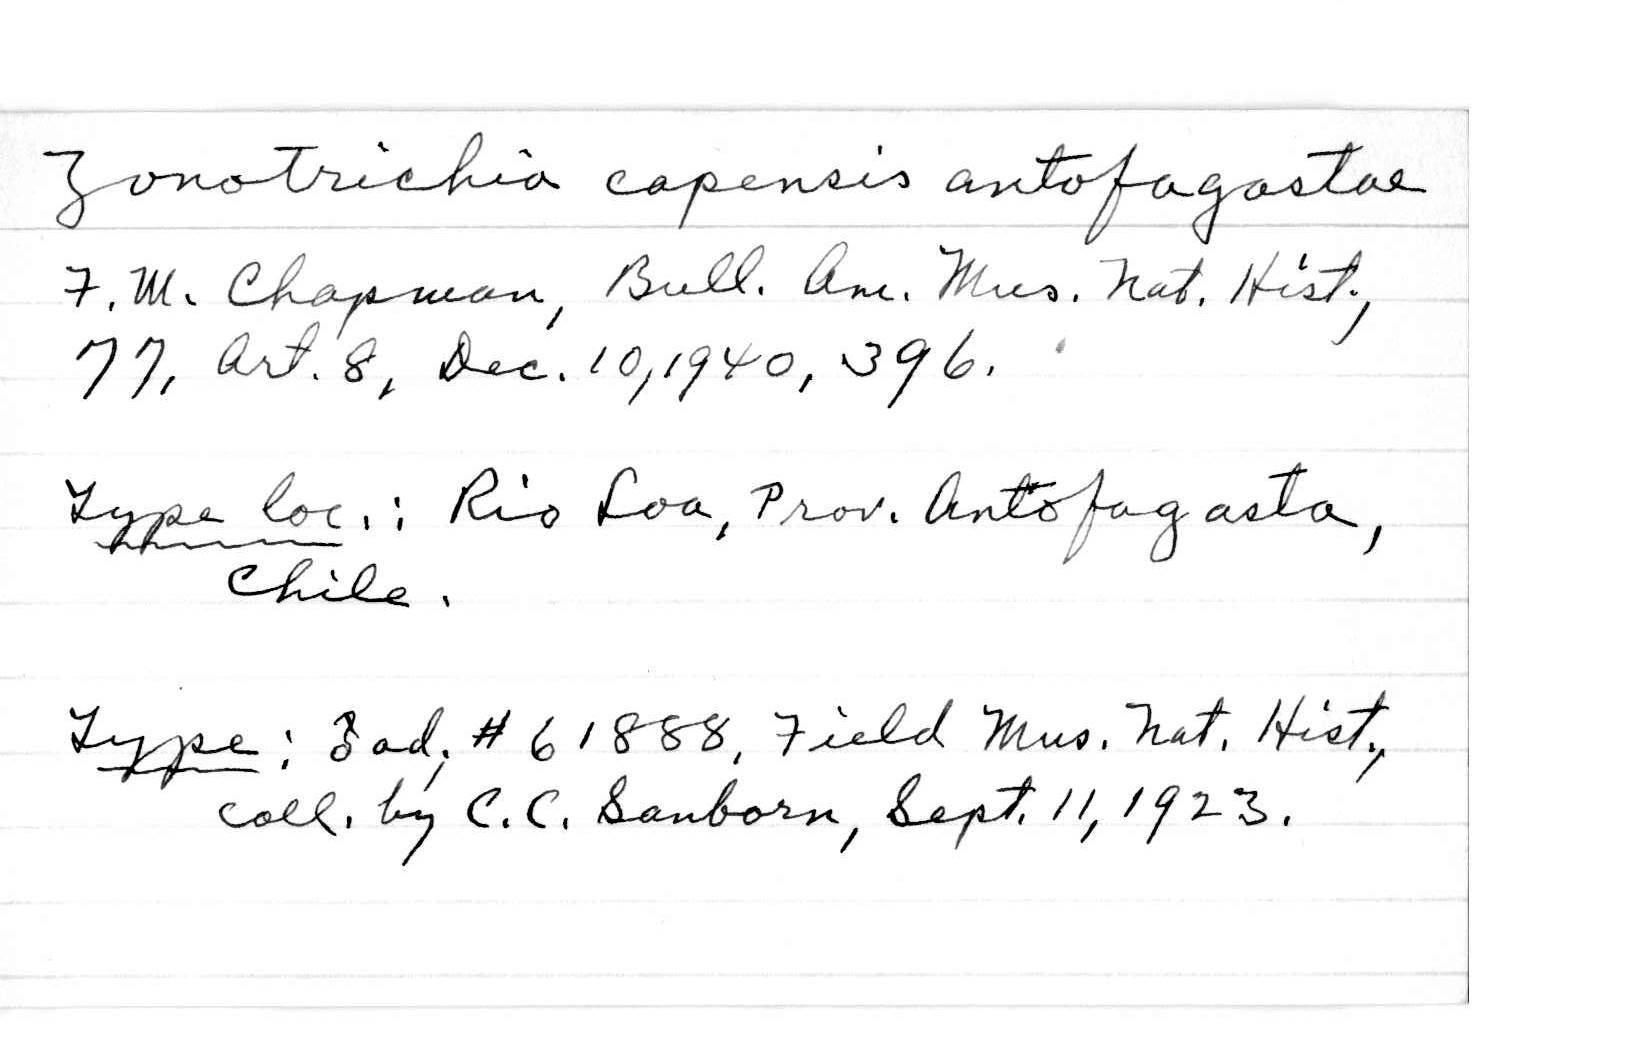 Zonotrichia capensis antofagastae
F. M. Chapman, Bull. Am. Mus. Nat. Hist.,
77, Art. 8, Dec. 10, 1940, 396.
Type loc.: Rio Loa, Prov. Antofagasta,
Chile.
Type: ♂ ad., # 61888, Field Mus. Nat. Hist.,
coll. by C. C. Sanborn, Sept. 11, 1923.